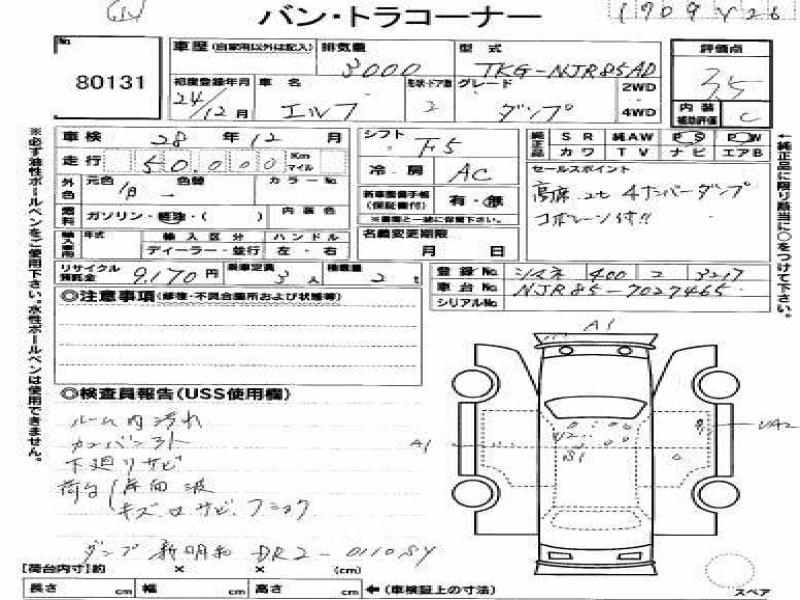 バン・トラコーナー
No.
80131
車歴 (自家用以外は記入)
排気量
3000
型式
TKG-NJR85AD
評価点
3.5
初度登録年月
24/12月
車名
エルフ
形状・ドア数
2
グレード
ダンプ
2WD
4WD
内装補助評価
C
車検 28年12月
シフト
F5
純正品
SR 純AW PS PW
カワ TV ナビ エアB
走行 50,000 Km マイル
冷房
AC
セールスポイント
高床 2t 4ナンバーダンプ
コボレーン付!!
外色
元色
白
色替
カラーNo.
新車整備手帳(保証書付)
有・無
※書面と一緒に保管下さい。
燃料
ガソリン・軽油・( )
内装色
名義変更期限
月 日
輸入車用
年式
輸入区分
ディーラー・並行
ハンドル
左・右
リサイクル預託金
9,170円
乗車定員
3人
積載量
2t
登録No.
シマネ 400 ワ 3217
車台No.
NJR85-7027465
シリアルNo.
◎注意事項(修復・不具合箇所および状態等)
◎検査員報告(USS使用欄)
ルーム内汚れ
下廻りサビ
荷台
キズ
サビ
ダンプ 新明和 DR2-01108Y
A1
A1
【荷台内寸】約 × × (cm)
長さ cm 幅 cm 高さ cm ←(車検証上の寸法)
スペア
※必ず油性ボールペンをご使用下さい。水性ボールペンは使用できません。
←純正品に限り該当に○をつけて下さい。